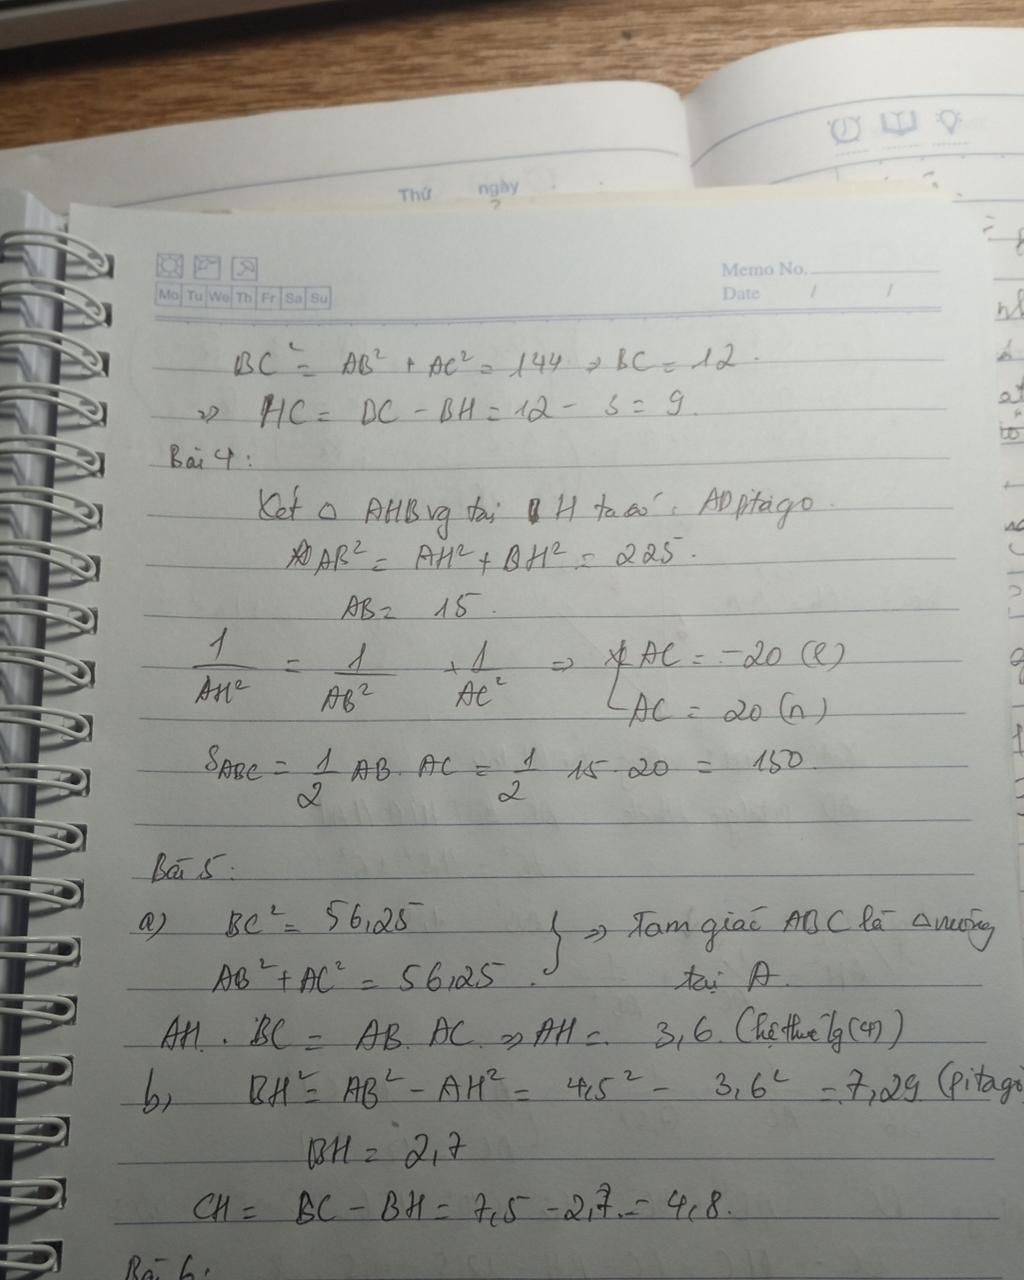 Thứ ngày
Memo No.
Mo Tu We Th Fr Sa Su
Date / /
BC² = AB² + AC² = 144 ⇒ BC = 12.
⇒ HC = BC - BH = 12 - 3 = 9.
Bài 4:
Xét △ AHB vg tại H ta có: AD ptago.
AB² = AH² + BH² = 225.
AB = 15.
1/AH² = 1/AB² + 1/AC² ⇒ AC = -20 (l)
AC = 20 (n)
S_ABC = 1/2 AB. AC = 1/2 15.20 = 150.
Bài 5:
a) BC² = 56,25 } ⇒ Tam giác ABC là △ vuông
AB² + AC² = 56,25. tại A.
AH. BC = AB. AC. ⇒ AH = 3,6. (hệ thức lg (4))
b, BH² = AB² - AH² = 4,5² - 3,6² = 7,29 (pitago
BH = 2,7
CH = BC - BH = 7,5 - 2,7. = 4,8.
Bài 6: